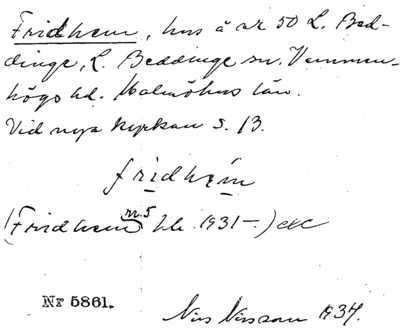 Fridhem, hus å nr 50 L. Bed-
dinge, L. Beddinge sn. Vemmen-
högs hd. Malmöhus län.
Vid nya kyrkan S. B.
fridhem
(Fridhem nr. 5 hl. 1931–)
Nr 5861.
Nils Nilsson 1934.